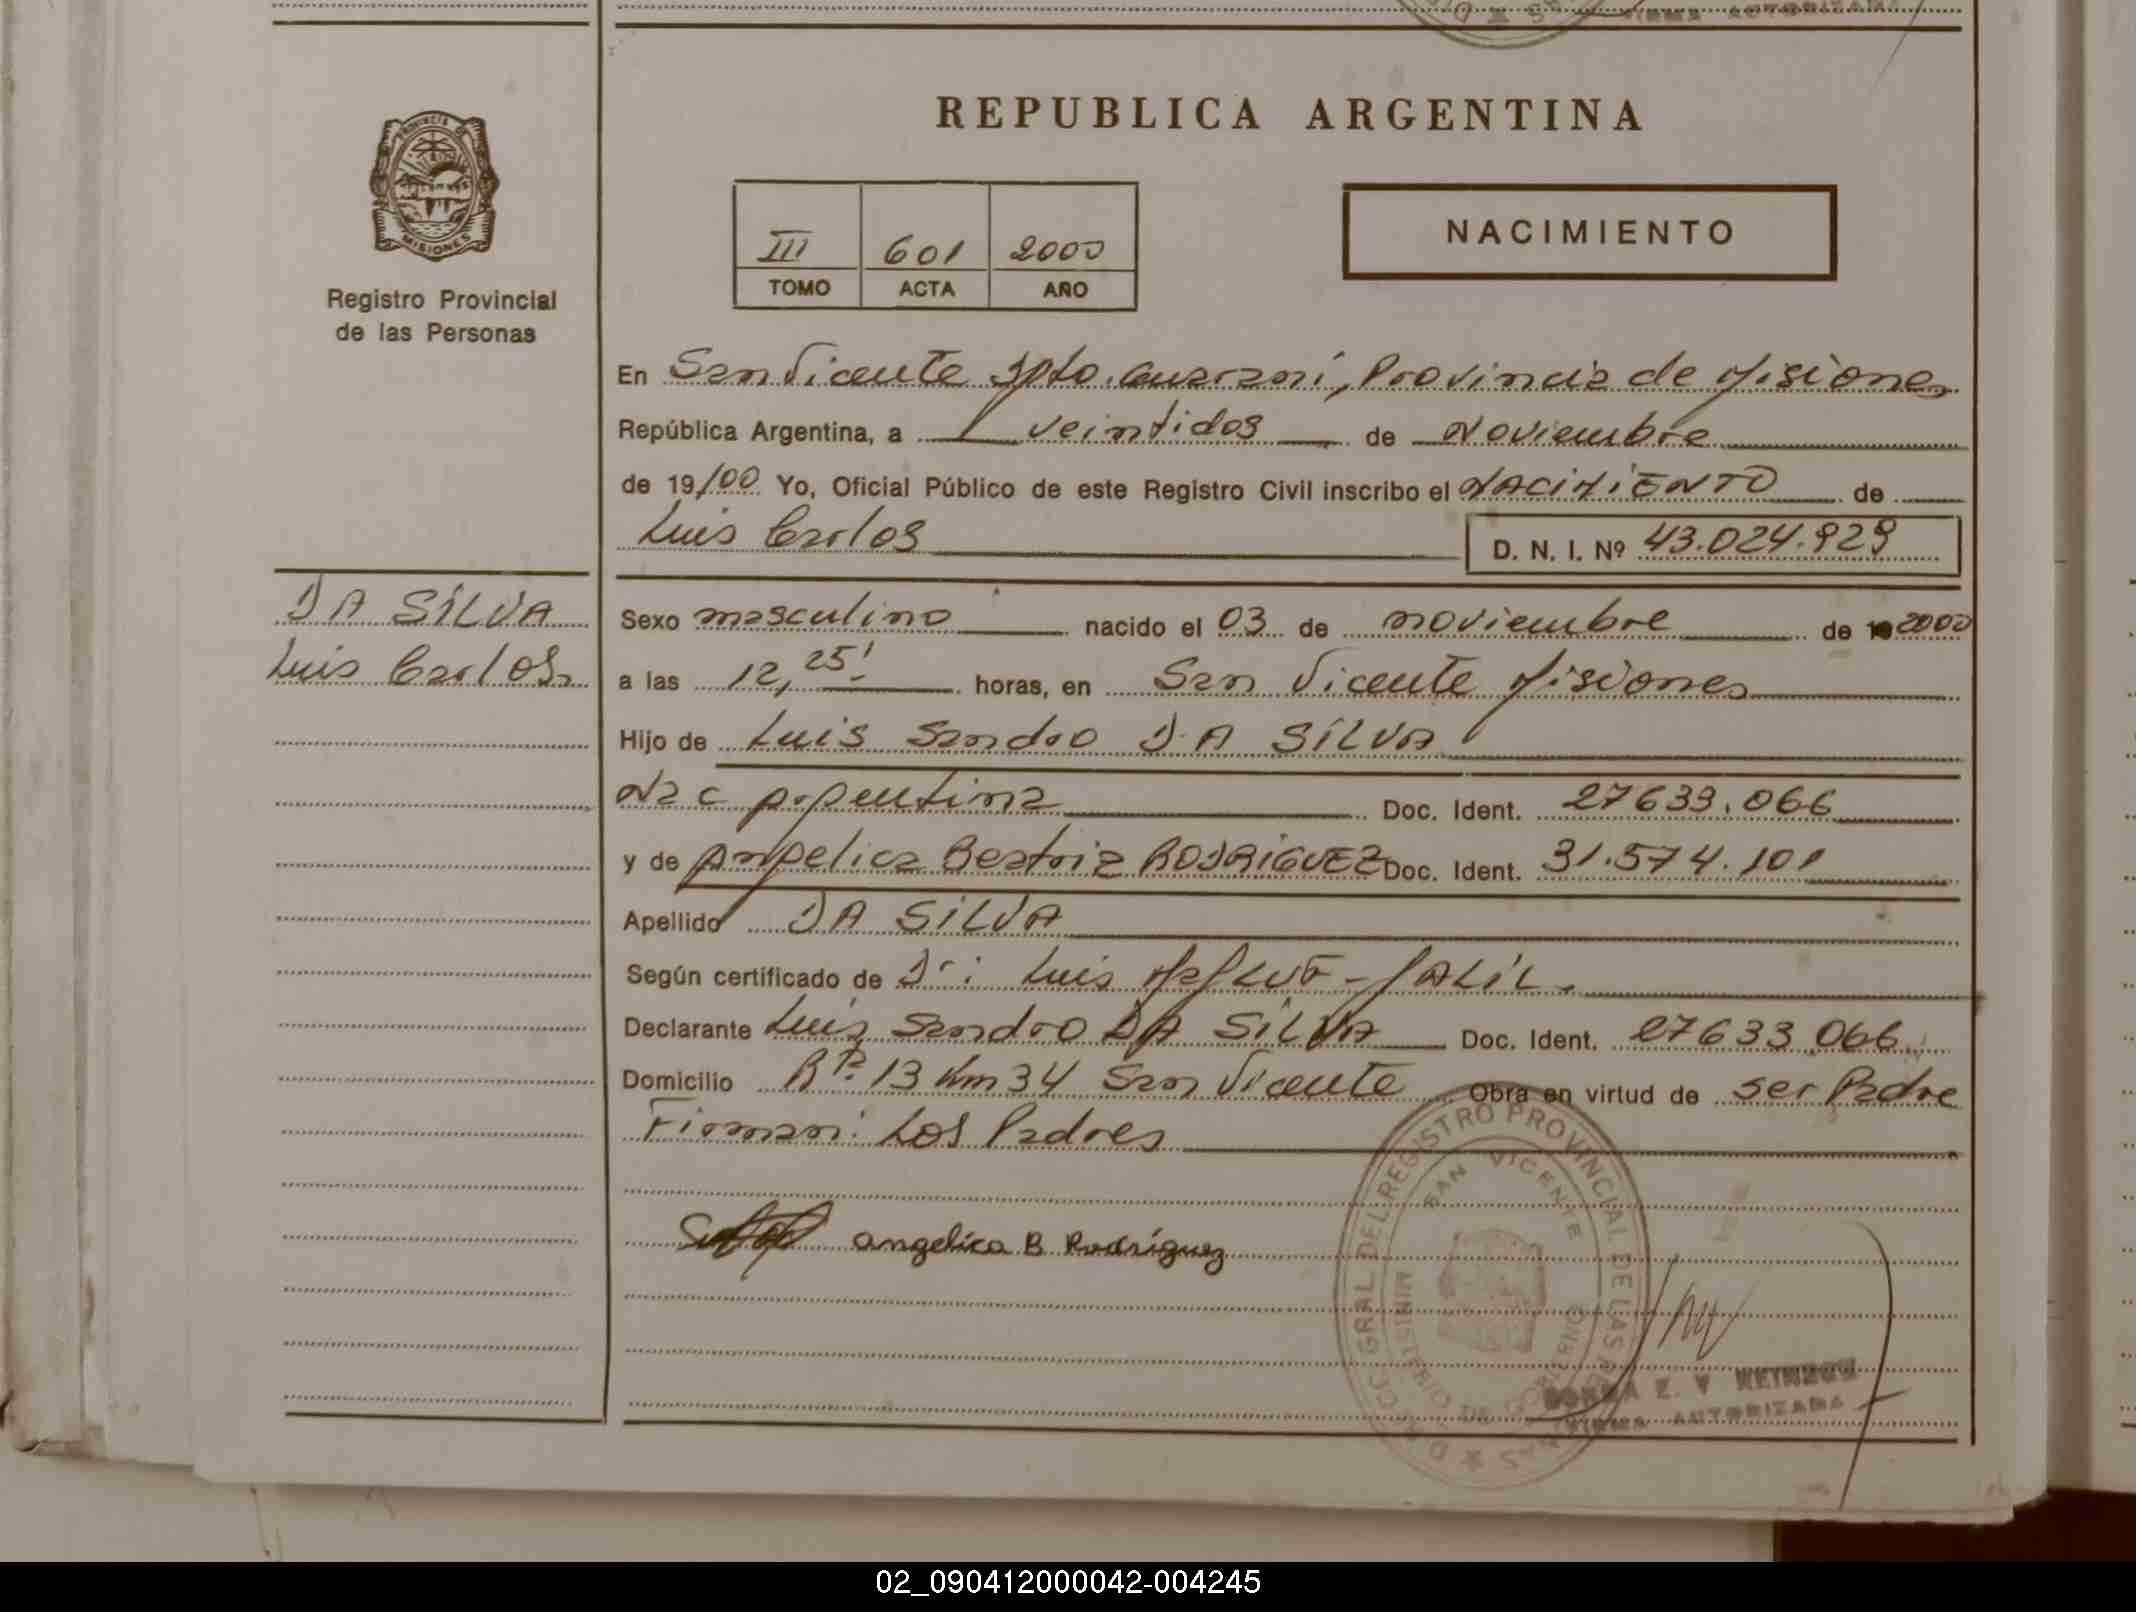 FIRMA AUTORIZADA
REPUBLICA ARGENTINA
PROVINCIA DE
MISIONES
Registro Provincial
de las Personas
III 601 2000
TOMO ACTA AÑO
NACIMIENTO
En San Vicente Dpto. Guaraní, Provincia de Misiones
República Argentina, a veintidos de Noviembre
de 19/00 Yo, Oficial Público de este Registro Civil inscribo el NACIMIENTO de
Luis Carlos D. N. I. Nº 43.024.929
DA SILVA
Luis Carlos
Sexo masculino nacido el 03 de noviembre de 2000
a las 12,25' horas, en San Vicente Misiones
Hijo de Luis Sandro DA SILVA
Nac Argentina Doc. Ident. 27633.066
y de Angelica Beatriz RODRIGUEZ Doc. Ident. 31.574.101
Apellido DA SILVA
Según certificado de Dr: Luis
Declarante Luis Sandro DA SILVA Doc. Ident. 27633 066
Domicilio Rta. 13 Km 34 San Vicente Obra en virtud de ser Padre
Firman: Los Padres
angelica B Rodríguez
GRAL DEL REGISTRO PROVINCIAL DE LAS
SAN VICENTE
MINISTERIO DE GOBIERNO
FIRMA AUTORIZADA
02_090412000042-004245